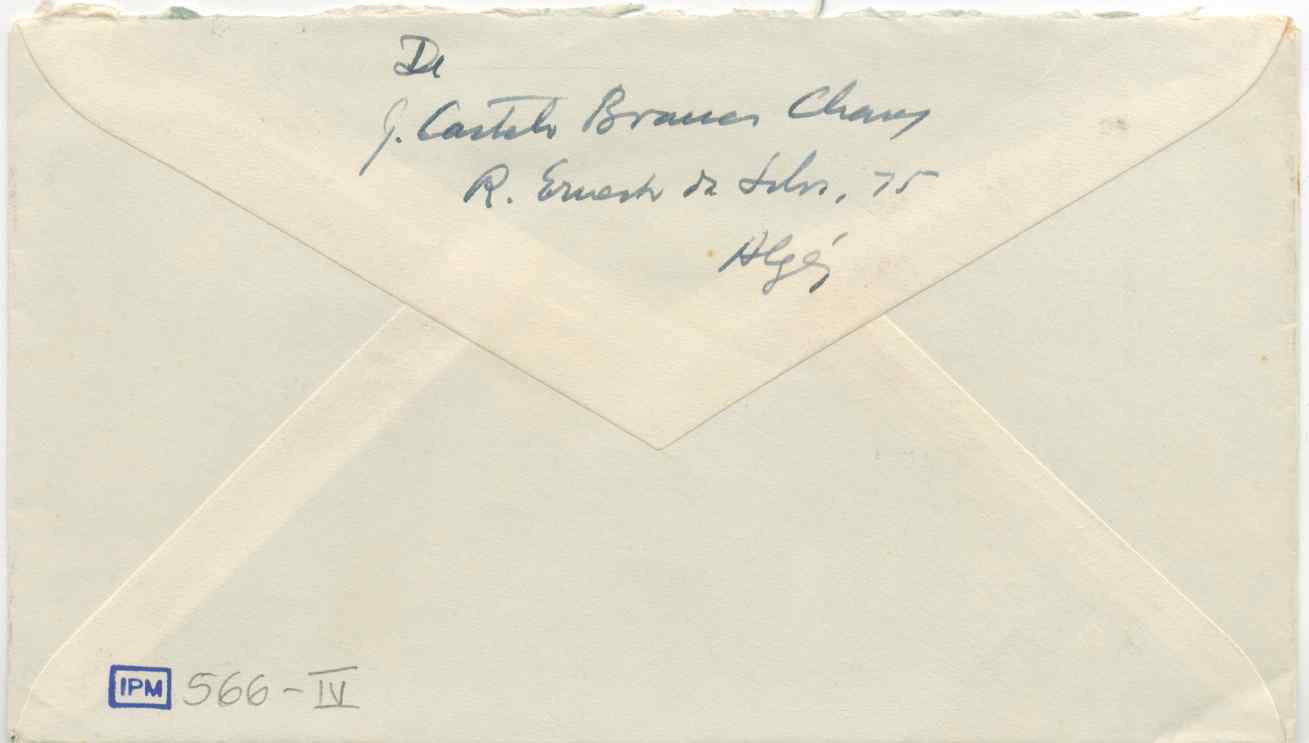 De
J. Castelo Branco Chaves
R. Ernesto da Silva, 75
Algés
IPM 566-IV